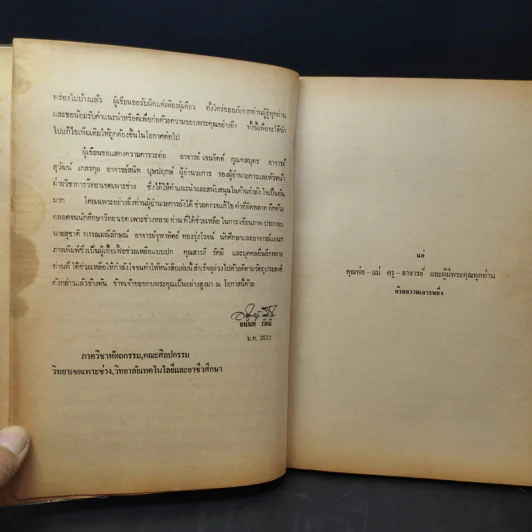 หร่องไปบ้างแล้ว ผู้เขียนขอรับผิดแต่เพียงผู้เดียว ทั้งใคร่ขออภัยจากท่านผู้รู้ทุกท่าน
และขอน้อมรับคำแนะนำหรือติเพื่อก่อด้วยความขอบพระคุณอย่างยิ่ง ทั้งนี้เพื่อจะได้นำ
ไปแก้ไขเพิ่มเติมให้ถูกต้องขึ้นในโอกาสต่อไป
ผู้เขียนขอแสดงความคารวะต่อ อาจารย์ เจนจิตต์ กุณฑลบุตร อาจารย์
สุวัฒน์ เกสรกุล อาจารย์สนิท บุษปฤกษ์ ผู้อำนวยการ รองผู้อำนวยการและหัวหน้า
ฝ่ายวิชาการวิทยาเขตเพาะช่าง ซึ่งได้ให้คำแนะนำและสนับสนุนในด้านกำลังใจเป็นอัน
มาก โดยเฉพาะอย่างยิ่งท่านผู้อำนวยการยังได้ ช่วยตรวจแก้ไข คำที่ผิดพลาด อีกด้วย
ตลอดจนนักศึกษาวิทยาเขต เพาะช่างหลาย ท่าน ที่ได้ช่วยเหลือ ในการ เขียนภาพ ประกอบ
นายสุชาติ พรรณมณีลักษณ์ อาจารย์จุฑาทิตย์ ทองรุ่งโรจน์ นักศึกษาและอาจารย์แผนก
ภาพพิมพ์ซึ่งเป็นผู้เอื้อเฟื้อช่วยเหลือแบบปก คุณสารภี รัศมี และบุคคลอื่นอีกหลาย
ท่านที่ ได้ช่วยเหลือให้กำลังใจจนทำให้หนังสือเล่มนี้ สำเร็จลุล่วงไปด้วยดีตามวัตถุประสงค์
ดังกล่าวแล้วข้างต้น ข้าพเจ้าขอขอบพระคุณเป็นอย่างสูงมา ณ โอกาสนี้ด้วย
อนันต์ รัศมี
ม.ค. 2521
ภาควิชาหัตถกรรม,คณะศิลปกรรม
วิทยาเขตเพาะช่าง,วิทยาลัยเทคโนโลยีและอาชีวศึกษา
แด่
คุณพ่อ - แม่ ครู - อาจารย์ และผู้มีพระคุณทุกท่าน
ด้วยความเคารพยิ่ง